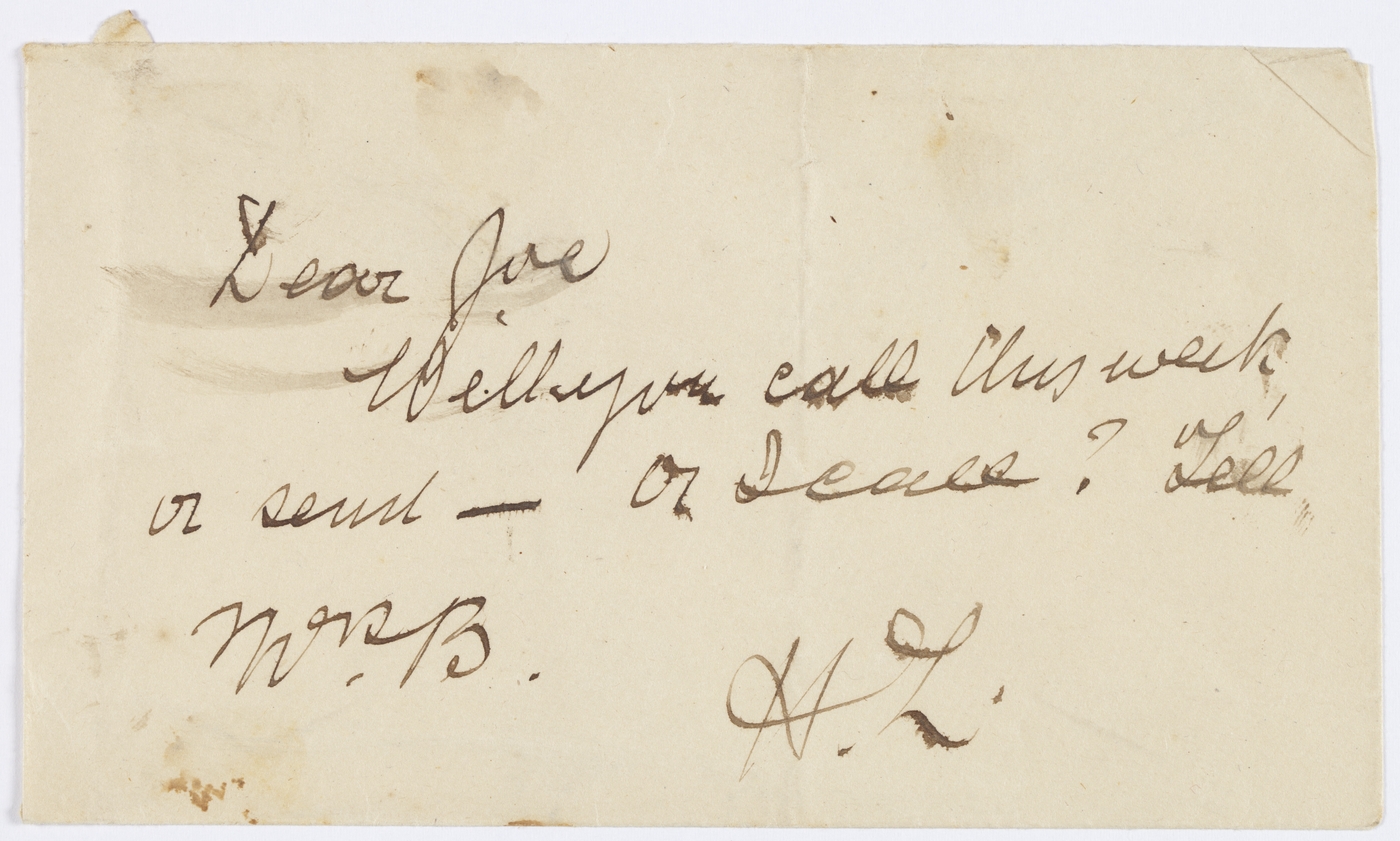 Dear Joe
Will you call this week,
or send — Or I call? Tell
Mrs. B.
H. L.